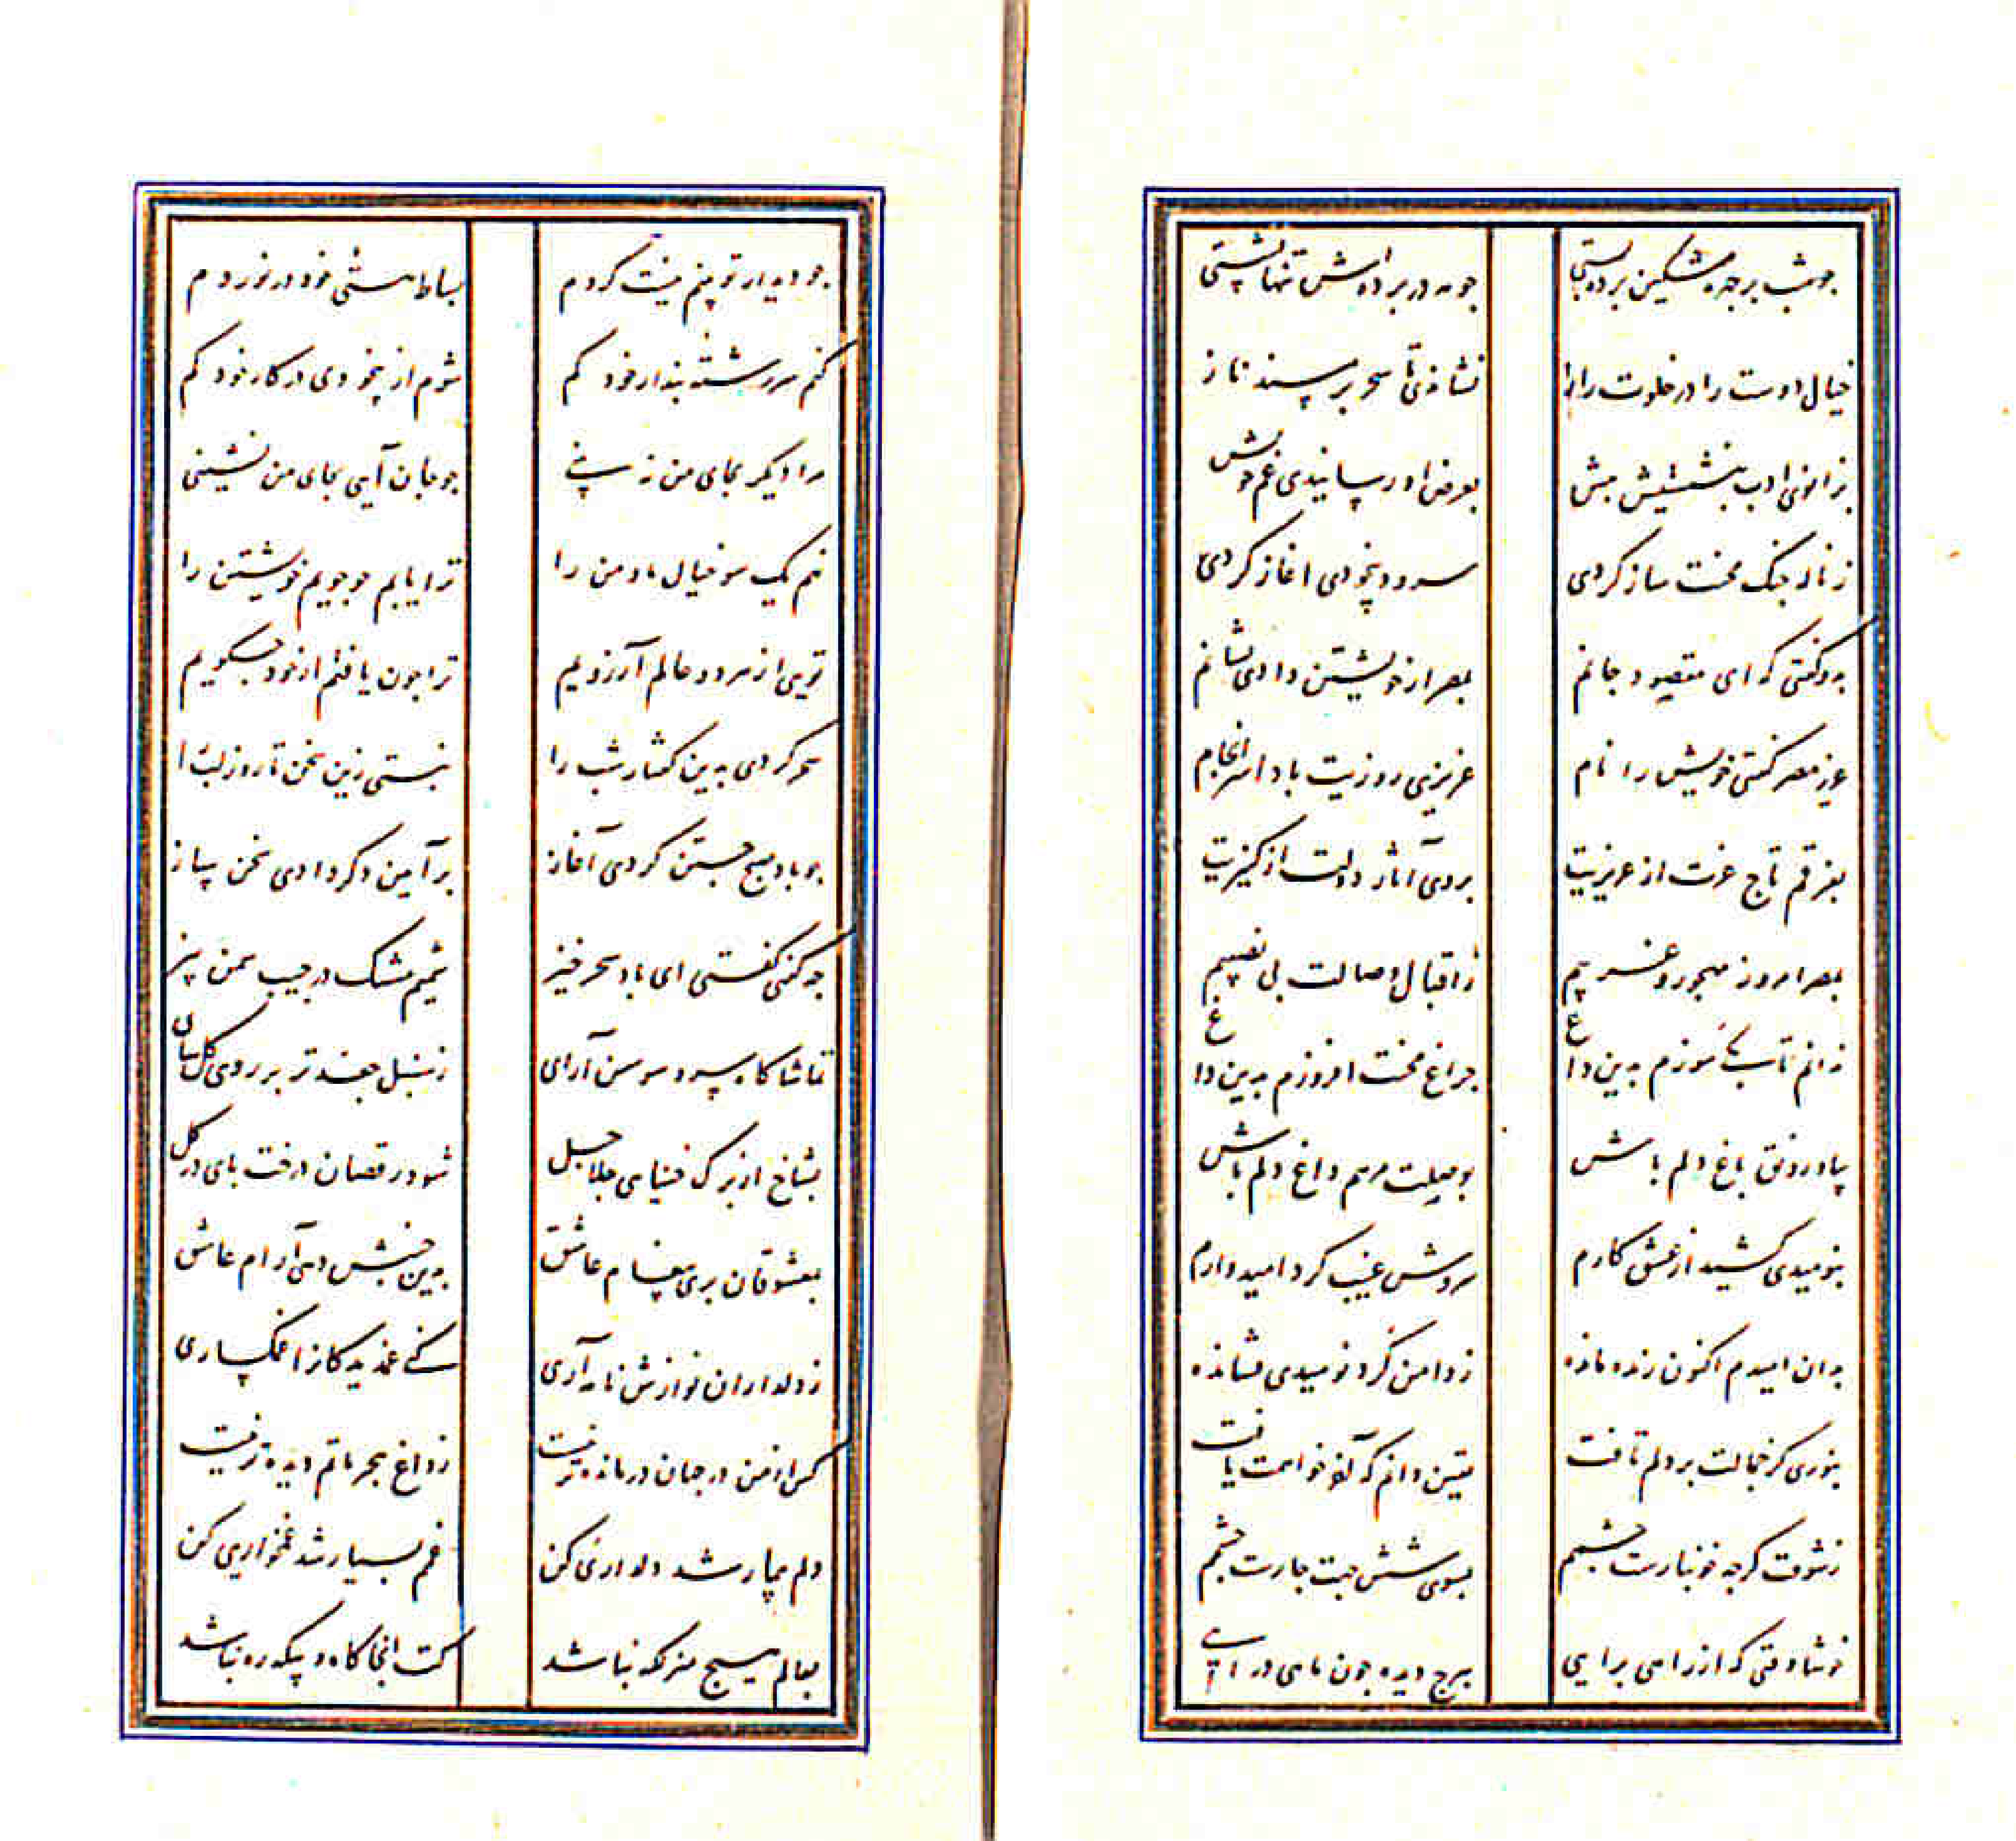 چو شب بر چهره مشکین پرده بستی
چو مه در پرده‌اش تنها نشستی
خیال دوست را در خلوت راز
نشاندی تا سحر بر مسند ناز
بزانوی ادب بنشستیش پیش
بعرض او رسانیدی غم خویش
ز ناله چنک محنت ساز کردی
سرود بیخودی اغاز کردی
بدو گفتی که ای مقصود جانم
بمصر از خویشتن دادی نشانم
عزیز مصر گفتی خویش را نام
عزیزی روزیت باد اسرانجام
بفرقم تاج عزت از عزیزیت
برویم آثار دولت از کنیزیت
بمصر امروز مهجور و غریبم
ز اقبال وصالت بی نصیبم
ندانم تا بکی سوزم بدین داغ
چراغ محنت افروزم بدین داغ
بیا و رونق باغ دلم باش
بوصلت مرهم داغ دلم باش
بنومیدی کشید از عشق کارم
سروش غیب کرد امیدوارم
بدان امیدم اکنون زنده مانده
ز دامن گرد نومیدی فشانده
بنوری کز جمالت بر دلم تافت
یقین دانم که آخر خواهمت یافت
ز شوقت گرچه خونبارست چشمم
بسوی شش جهت چارست چشمم
خوشا وقتی که از راهی برایی
ببرج دیده چون ماهی در آیی
چو دیدار تو بینم نیست گردم
بساط هستی خود در نوردم
کنم سررشته پندار خود گم
شوم از بیخودی در کار خود گم
مرا دیگر بجای من نه بینی
چو جان آیی بجای من نشینی
نهم یک سو خیال ما و من را
ترا یابم چو جویم خویشتن را
تویی از هر دو عالم آرزویم
ترا چون یافتم از خود چه گویم
سحر کردی بدین گفتار شب را
نبستی زین سخن تا روز لب را
چو باد صبح جستن کردی آغاز
بر آیین دگر دادی سخن ساز
چه گفتی گفتی ای باد سحر خیز
شمیم مشک در جیب سمن بیز
تماشاگاه سرو و سوسن آرای
ز سنبل جعد تر بر روی گل سای
بشاخ از برگ جنبانی جلاجل
شود رقصان درخت پای در گل
بمعشوقان بری پیغام عاشق
بدین جنبش دهی آرام عاشق
ز دلداران نوازش نامه آری
کنی غمدیدکانرا غمگساری
کس از من در جهان درمانده‌تر نیست
ز داغ هجر ماتم دیده‌تر نیست
دلم بیمار شد دلداری کن
غم بسیار شد غمخواری کن
بعالم هیچ منزلگه نباشد
کت انجا گاه و بیگه ره نباشد